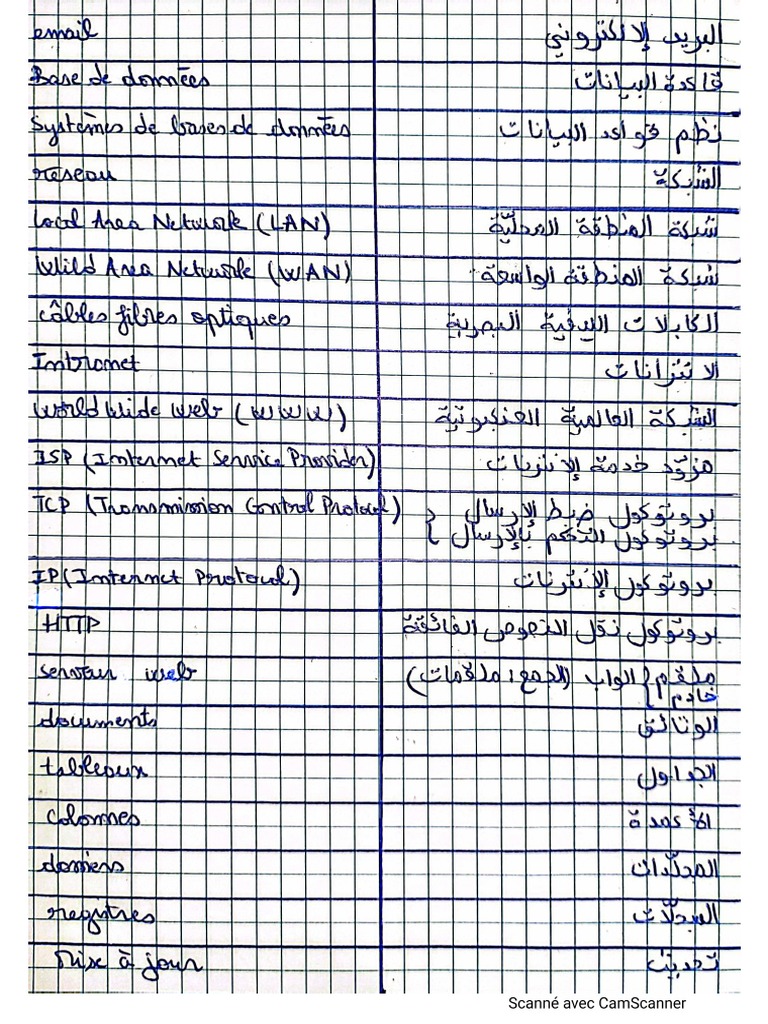 email البريد الإلكتروني
Base de données قاعدة البيانات
Systèmes de bases de données نظم قواعد البيانات
réseau الشبكة
Local Area Network (LAN) شبكة المنطقة المحلّية
Wild Area Network (WAN) شبكة المنطقة الواسعة
câbles fibres optiques الكابلات الليفية البصرية
Intranet الانترانات
World Wide Web (WWW) الشبكة العالمية العنكبوتية
ISP (Internet Service Provider) مزوّد خدمة الإنترنات
TCP (Transmission Control Protocol) { بروتوكول ضبط الإرسال
بروتوكول التحكم بالإرسال
IP (Internet Protocol) بروتوكول الإنترنات
HTTP بروتوكول نقل النصوص الفائقة
serveur web ملقم } الواب (الجمع: ملقمات)
خادم
documents الوثائق
tableaux الجداول
colonnes الأعمدة
dossiers المجلّدات
registres السجلّات
Mise à jour تحديث
Scanné avec CamScanner